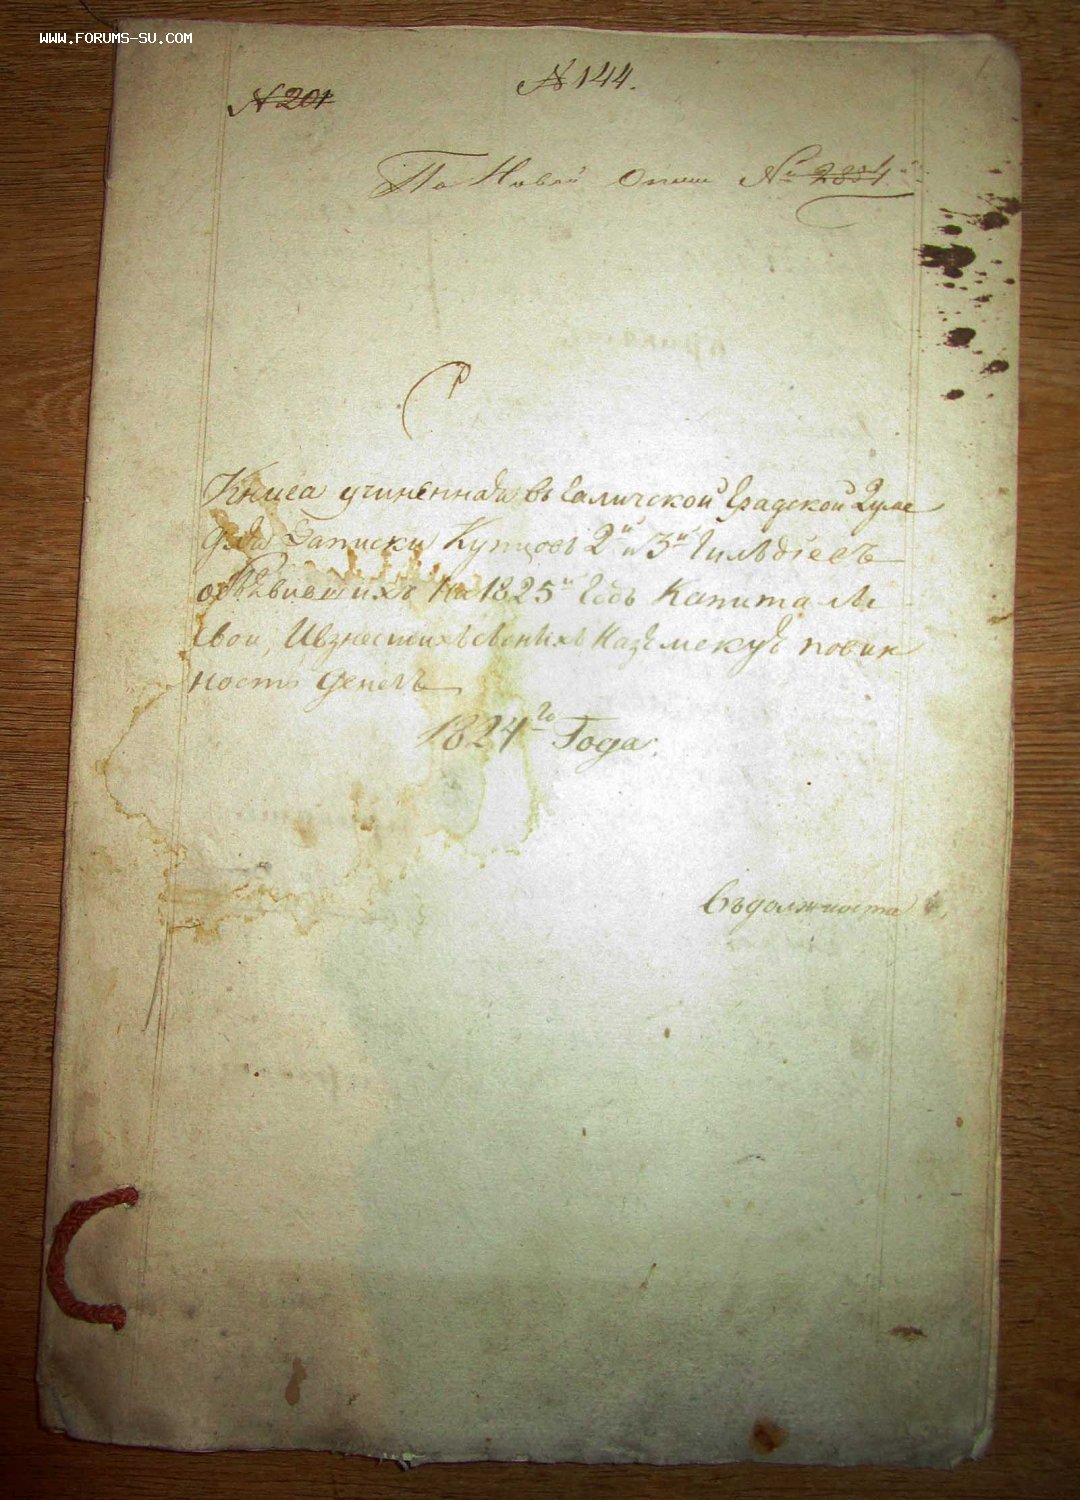 WWW.FORUMS-SU.COM
№ 201
№ 144.
По Новой Описи №
Книга учиненная въ Галичской Градской Думе
для Записки Купцовъ 2й и 3й Гильдiевъ
объевившихъ на 1825й Годъ Капиталы
Свои, И взнестихъ съ нихъ повин
ность Денегъ
1824го Года.